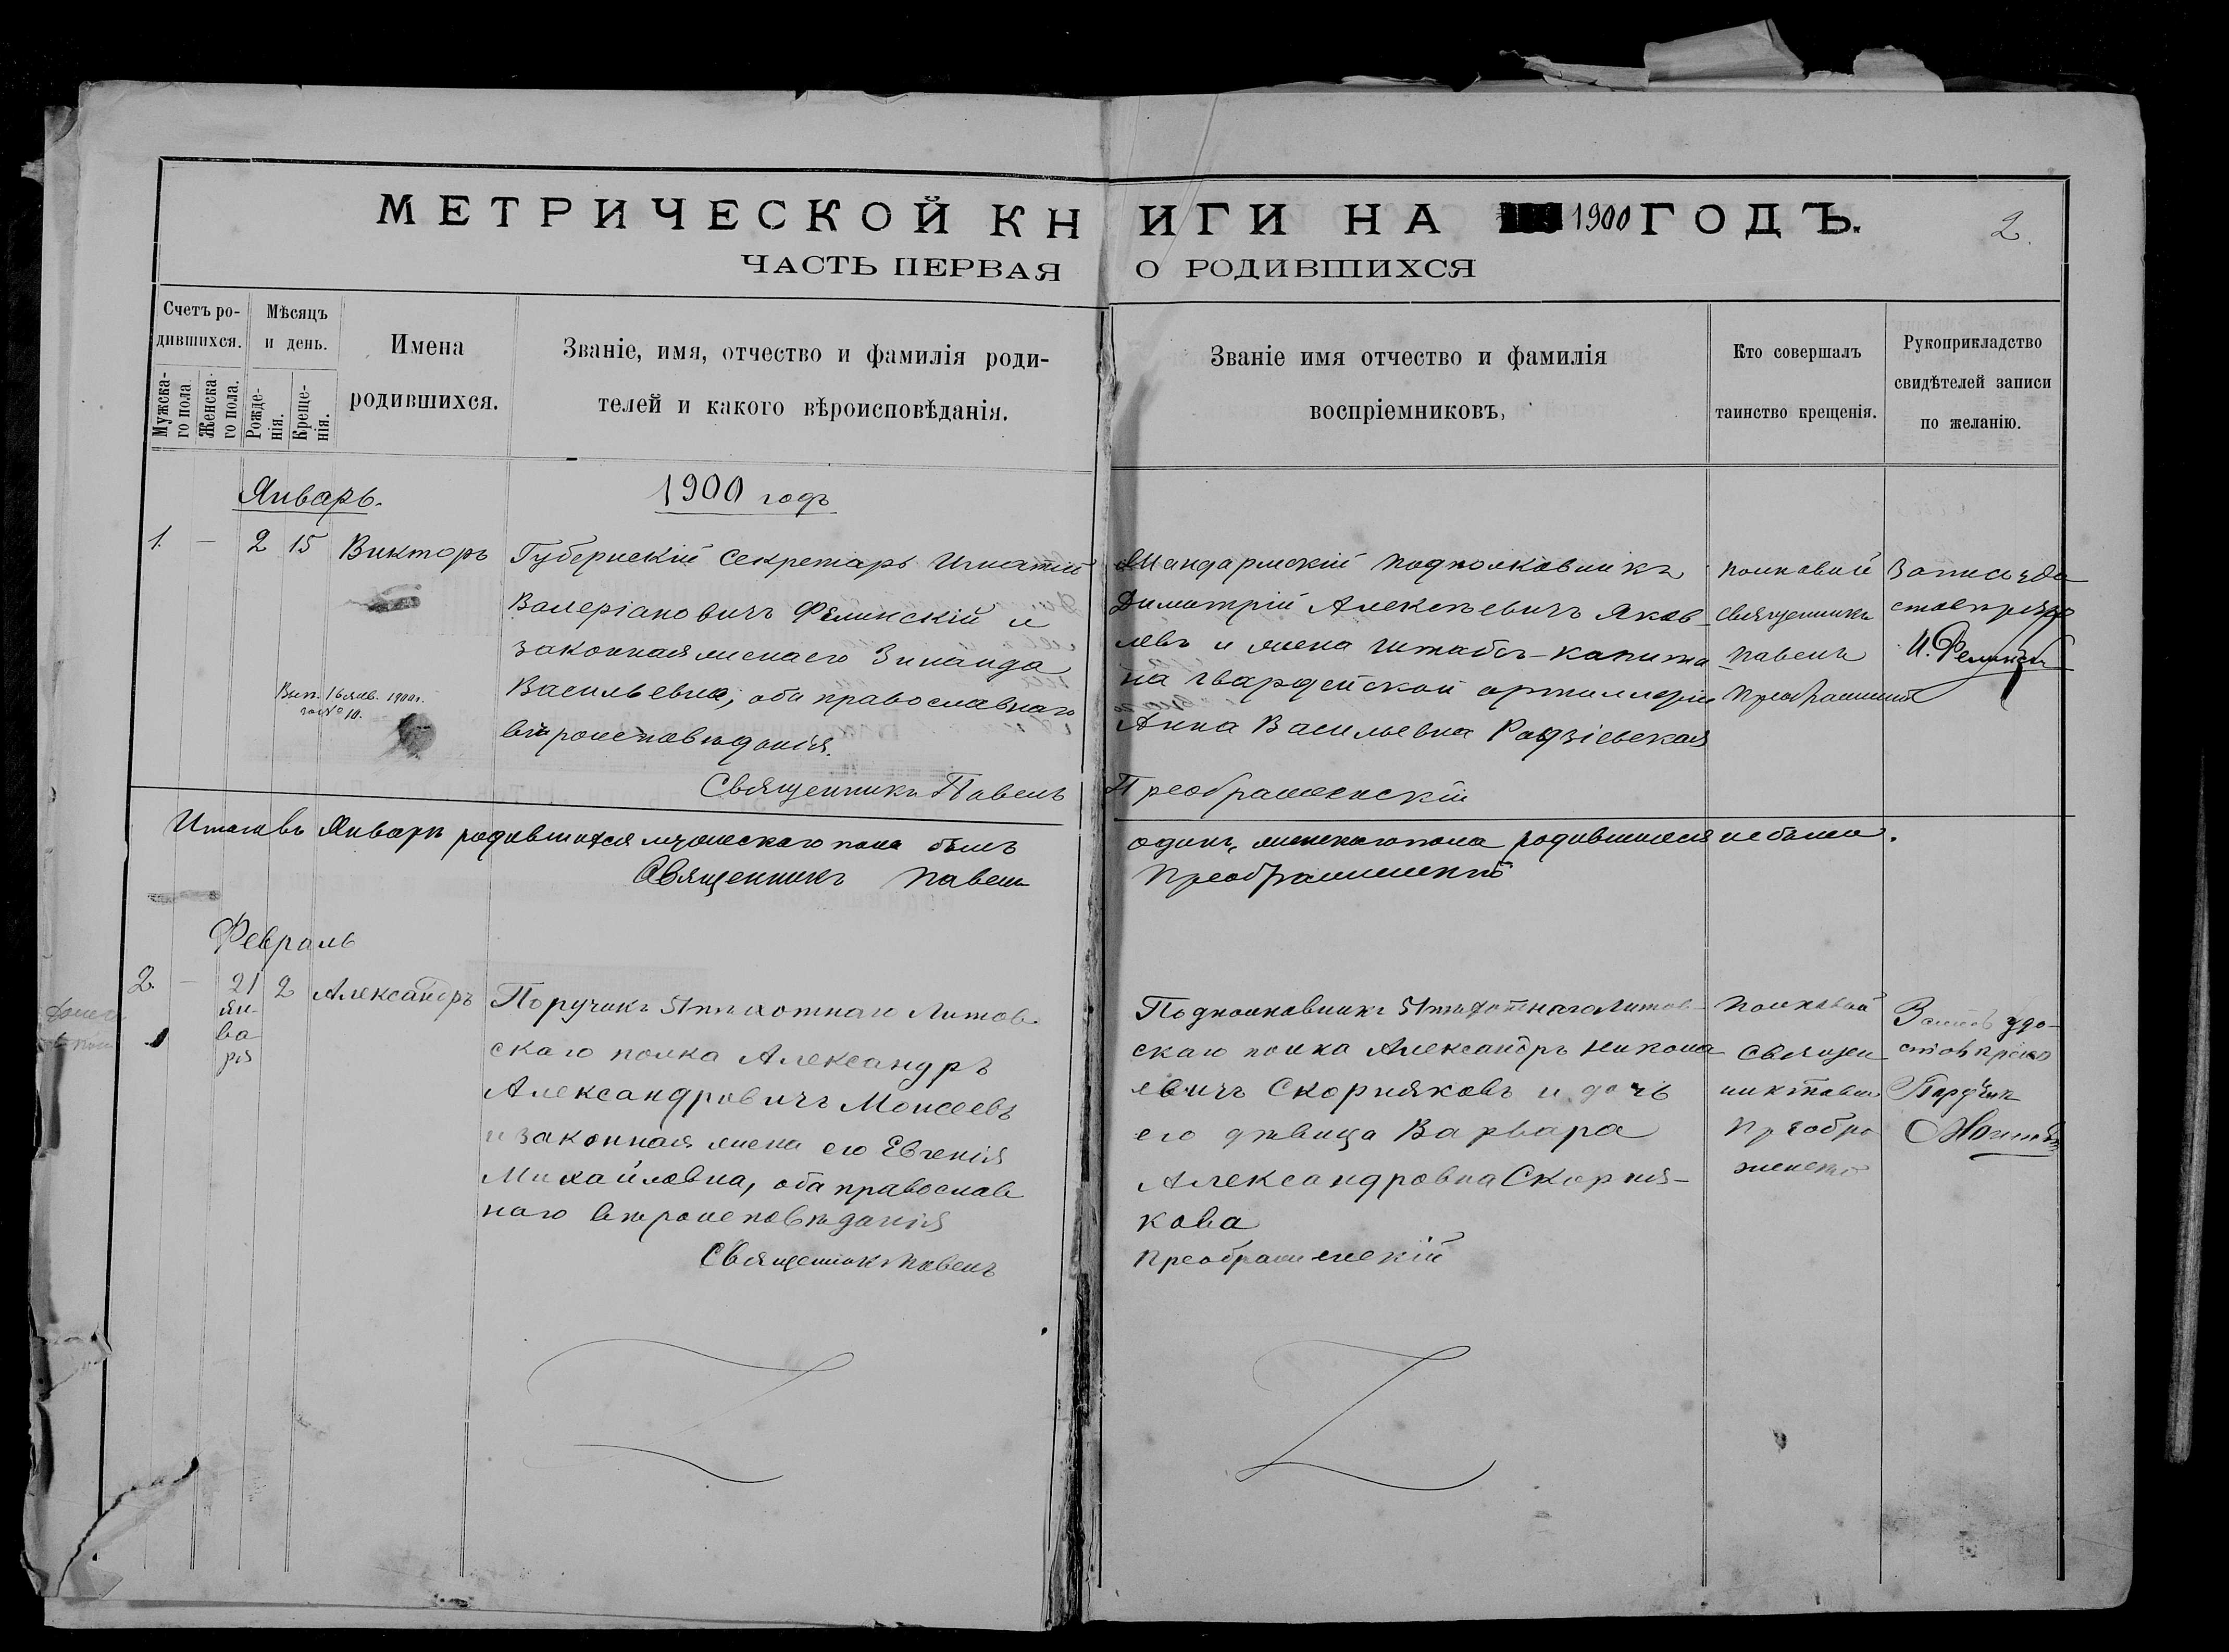 МЕТРИЧЕСКОЙ КНИГИ НА 1900 ГОДЪ.
2.
ЧАСТЬ ПЕРВАЯ О РОДИВШИХСЯ
Счетъ ро-
дившихся.
Мужска-
го пола
Женска-
го пола.
Мѣсяцъ
и день.
Рожде-
нія.
Креще-
нія.
Имена
родившихся.
Званіе, имя, отчество и фамилія роди-
телей и какого вѣроисповѣданія.
Званіе имя отчество и фамилія
воспріемниковъ,
Кто совершалъ
таинство крещенія.
Рукоприкладство
свидѣтелей записи
по желанію.
Январь.
1900 годъ
1. — 2 15 Викторъ
Губернскій Секретарь Игнатій
Валеріановичъ Фелинскій и
законная жена его Зинаида
Васильевна, оба православнаго
вѣроисповѣданія.
Вып. 16 янв. 1900 г.
за № 10.
Жандармскій подполковникъ
Димитрій Алексѣевичъ Яков-
левъ и жена штабсъ-капита-
на гвардейской артиллеріи
Анна Васильевна Радзіевская
полковой
священникъ
Павелъ
Преображенскій
И. Фелинскій
Священникъ Павелъ Преображенскій
Итого въ Январѣ родившихся мужескаго пола былъ одинъ, женскаго пола родившихся не было.
Священникъ Павелъ Преображенскій
Февраль
2. — 21 2 Александръ
ян-
ва-
ря
Поручикъ 51 пѣхотнаго Литов-
скаго полка Александръ
Александровичъ Моисеевъ
и законная жена его Евгенія
Михайловна, оба православ
наго вѣроисповѣданія
Подполковникъ 51 пѣхотнаго Литов-
скаго полка Александръ Никола
евичъ Скорняковъ и дочь
его дѣвица Варвара
Александровна Скорня-
кова
полковой
Священ
никъ Павелъ
Преобра
женскій
Запись удо-
Поручикъ
Священникъ Павелъ Преображенскій